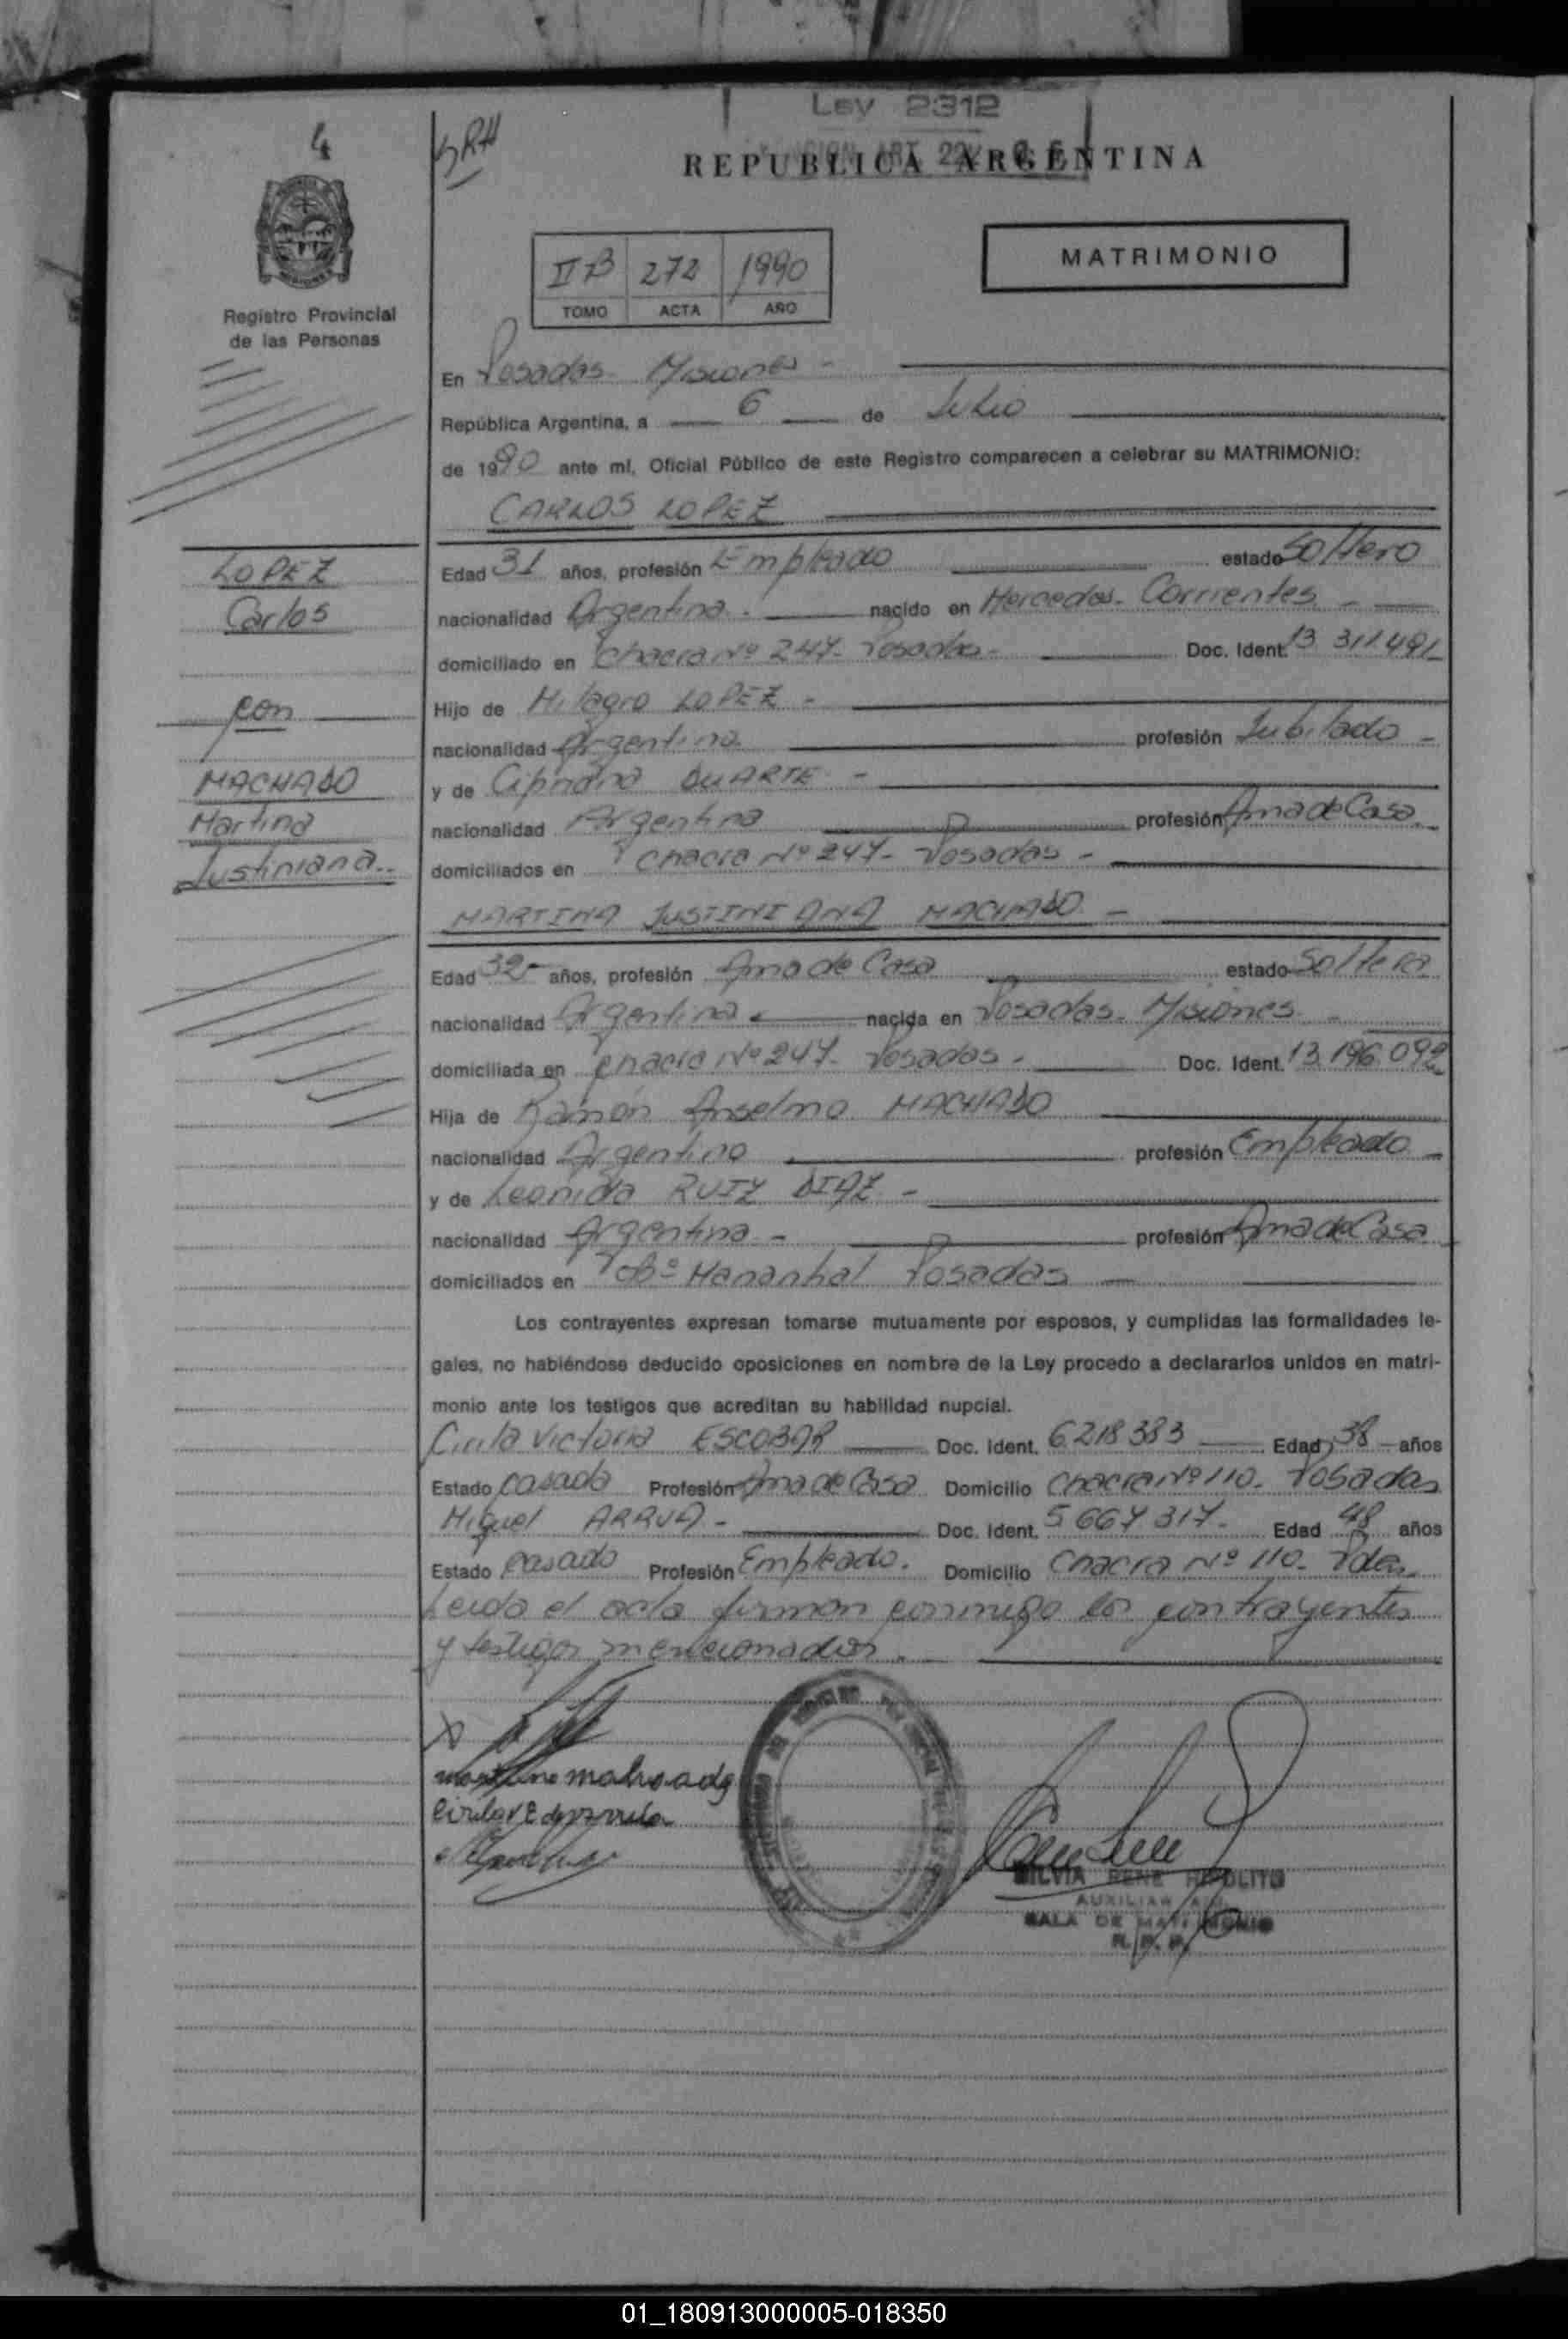 Ley 2312
4
SRH
REPUBLICA ARGENTINA
MATRIMONIO
II B 272 1990
TOMO ACTA AÑO
Registro Provincial
de las Personas
En Posadas- Misiones -
República Argentina, a 6 de Julio
de 1990 ante mí, Oficial Público de este Registro comparecen a celebrar su MATRIMONIO:
CARLOS LOPEZ
LOPEZ
Carlos
con
MACHADO
Martina
Justiniana..
Edad 31 años, profesión Empleado estado Soltero
nacionalidad Argentina. nacido en Mercedes- Corrientes -
domiciliado en Chacra Nº 247- Posadas- Doc. Ident. 13 311.491
Hijo de Milagro LOPEZ -
nacionalidad Argentina profesión Jubilado -
y de Cipriana DUARTE -
nacionalidad Argentina profesión Ama de Casa
domiciliados en Chacra Nº 247- Posadas -
MARTINA JUSTINIANA MACHADO -
Edad 32- años, profesión Ama de Casa estado Soltera
nacionalidad Argentina nacida en Posadas- Misiones -
domiciliada en Chacra Nº 247- Posadas. Doc. Ident. 13.196.092
Hija de Ramón Anselmo MACHADO
nacionalidad Argentina profesión Empleado -
y de Leonida RUIZ DIAZ -
nacionalidad Argentina - profesión Ama de Casa
domiciliados en Bº Mananhal Posadas
Los contrayentes expresan tomarse mutuamente por esposos, y cumplidas las formalidades le-
gales, no habiéndose deducido oposiciones en nombre de la Ley procedo a declararlos unidos en matri-
monio ante los testigos que acreditan su habilidad nupcial.
Cirila Victoria ESCOBAR Doc. Ident. 6.218.383 Edad 38 años
Estado casada Profesión Ama de Casa Domicilio Chacra Nº 110- Posadas
Miguel ARRUA- Doc. Ident. 5 667 317- Edad 48 años
Estado casado Profesión Empleado. Domicilio Chacra Nº 110- Pdas.
Leida el acta firman conmigo los contrayentes
y testigos mencionados.
SILVIA RENE HIPOLITO
AUXILIAR
SALA DE MATRIMONIO
R. P. P.
01_180913000005-018350